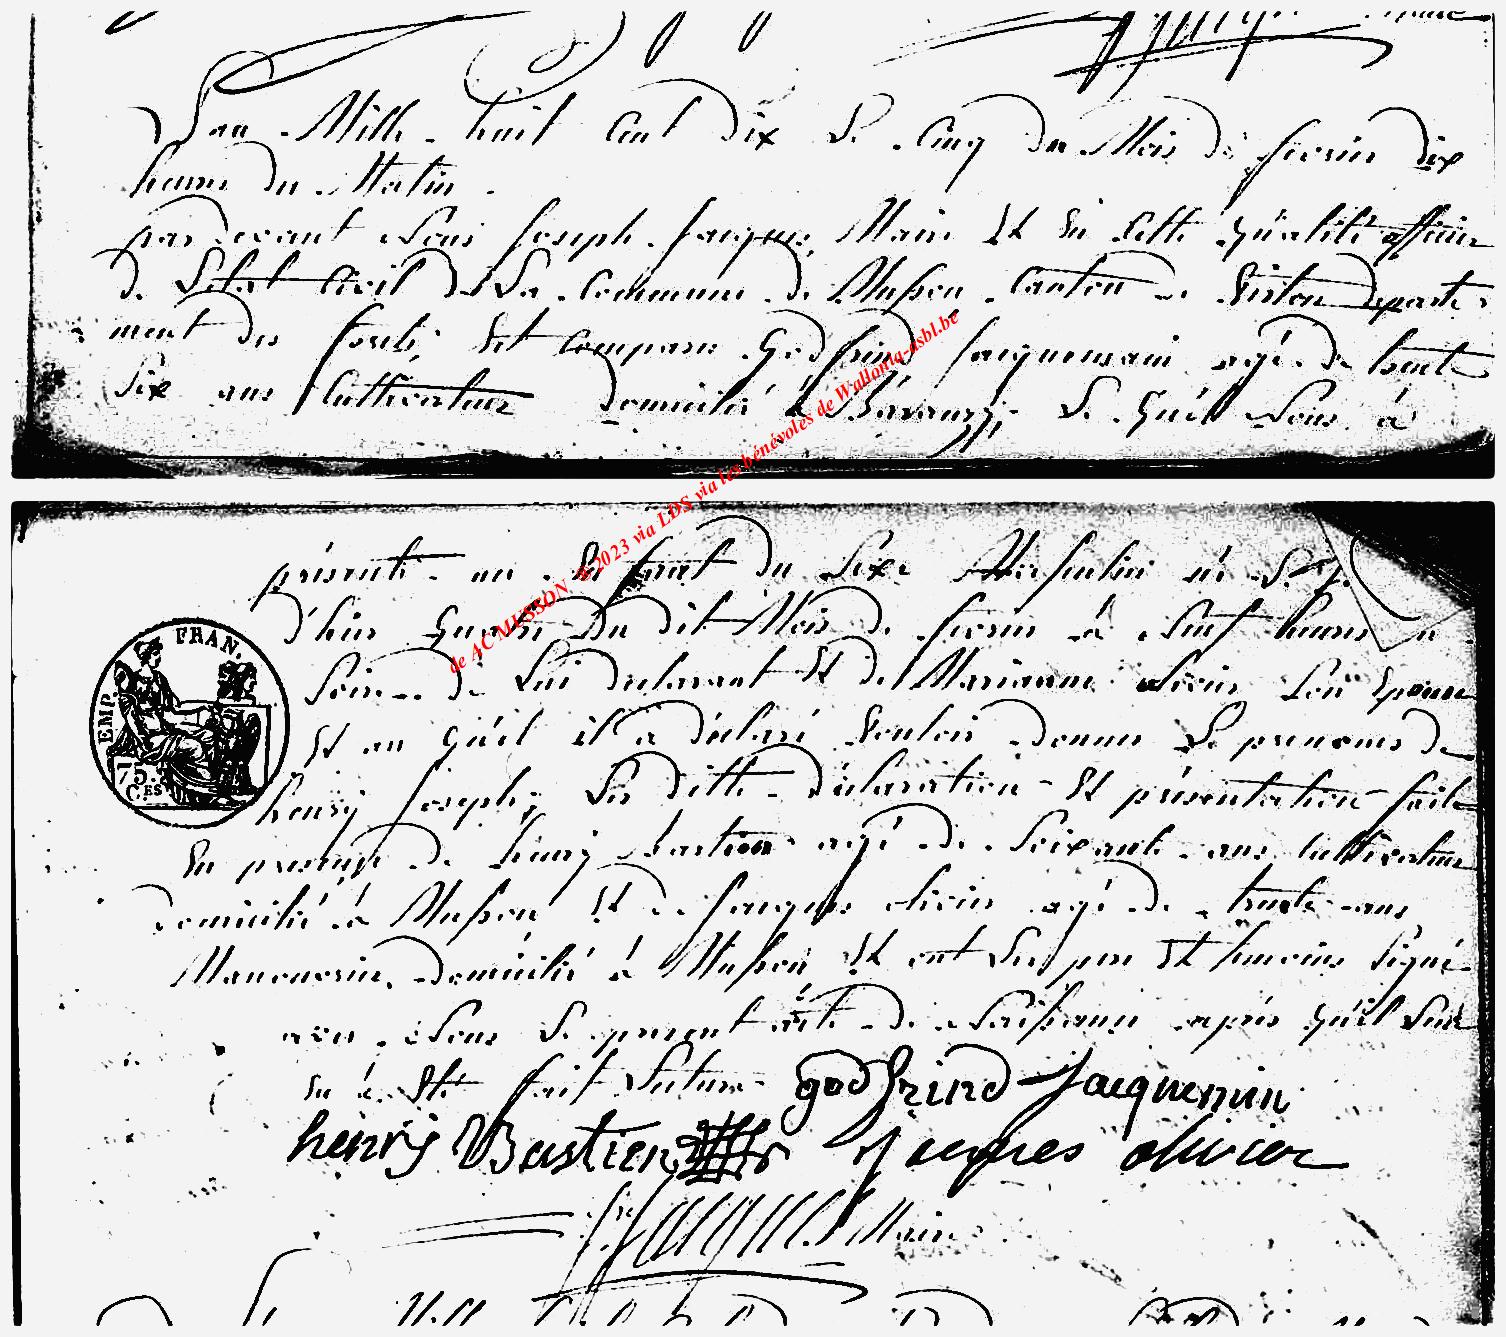 L'an Mille huit Cent dix Le Cinq du Mois de fevrier dix
heures du Matin
pardevant Nous Joseph Jacques Maire Et En Cette Qualité officier
de L'Etat Civil de La Commune de Musson Canton de Virton departe-
ment des forets, Est Comparu Godfrind Jacquemain agé de trente
Six ans Cultivateur domicilié à Baranzy; Le Quel Nous à
présenté un Enfant du Sexe Masculin né Le
d'hier Quatre du dit Mois de fevrier à Neuf heures
Soir de Lui declarant Et de Marianne Son Epouse
Et au Quel il a déclaré Vouloir donner Le prenoms de
henry Joseph; Les ditte déclaration Et présentation faite
En presence de henry Bastien agé de Soixante ans Cultivateur
domicilié à Musson Et de Jacques olivier agé de trente ans
Manouvrier domicilié à Musson Et ont Les pere Et temoins Signé
avec Nous Le present acte de Naissance après Qu'il Leur
En à Eté fait Lecture godfrind Jacquemin
henry Bastien Jacques olivier
Maire
EMP. FRAN.
75.
C.ES
de AC MUSSON © 2023 via LDS via les bénévoles de Wallonia-asbl.be